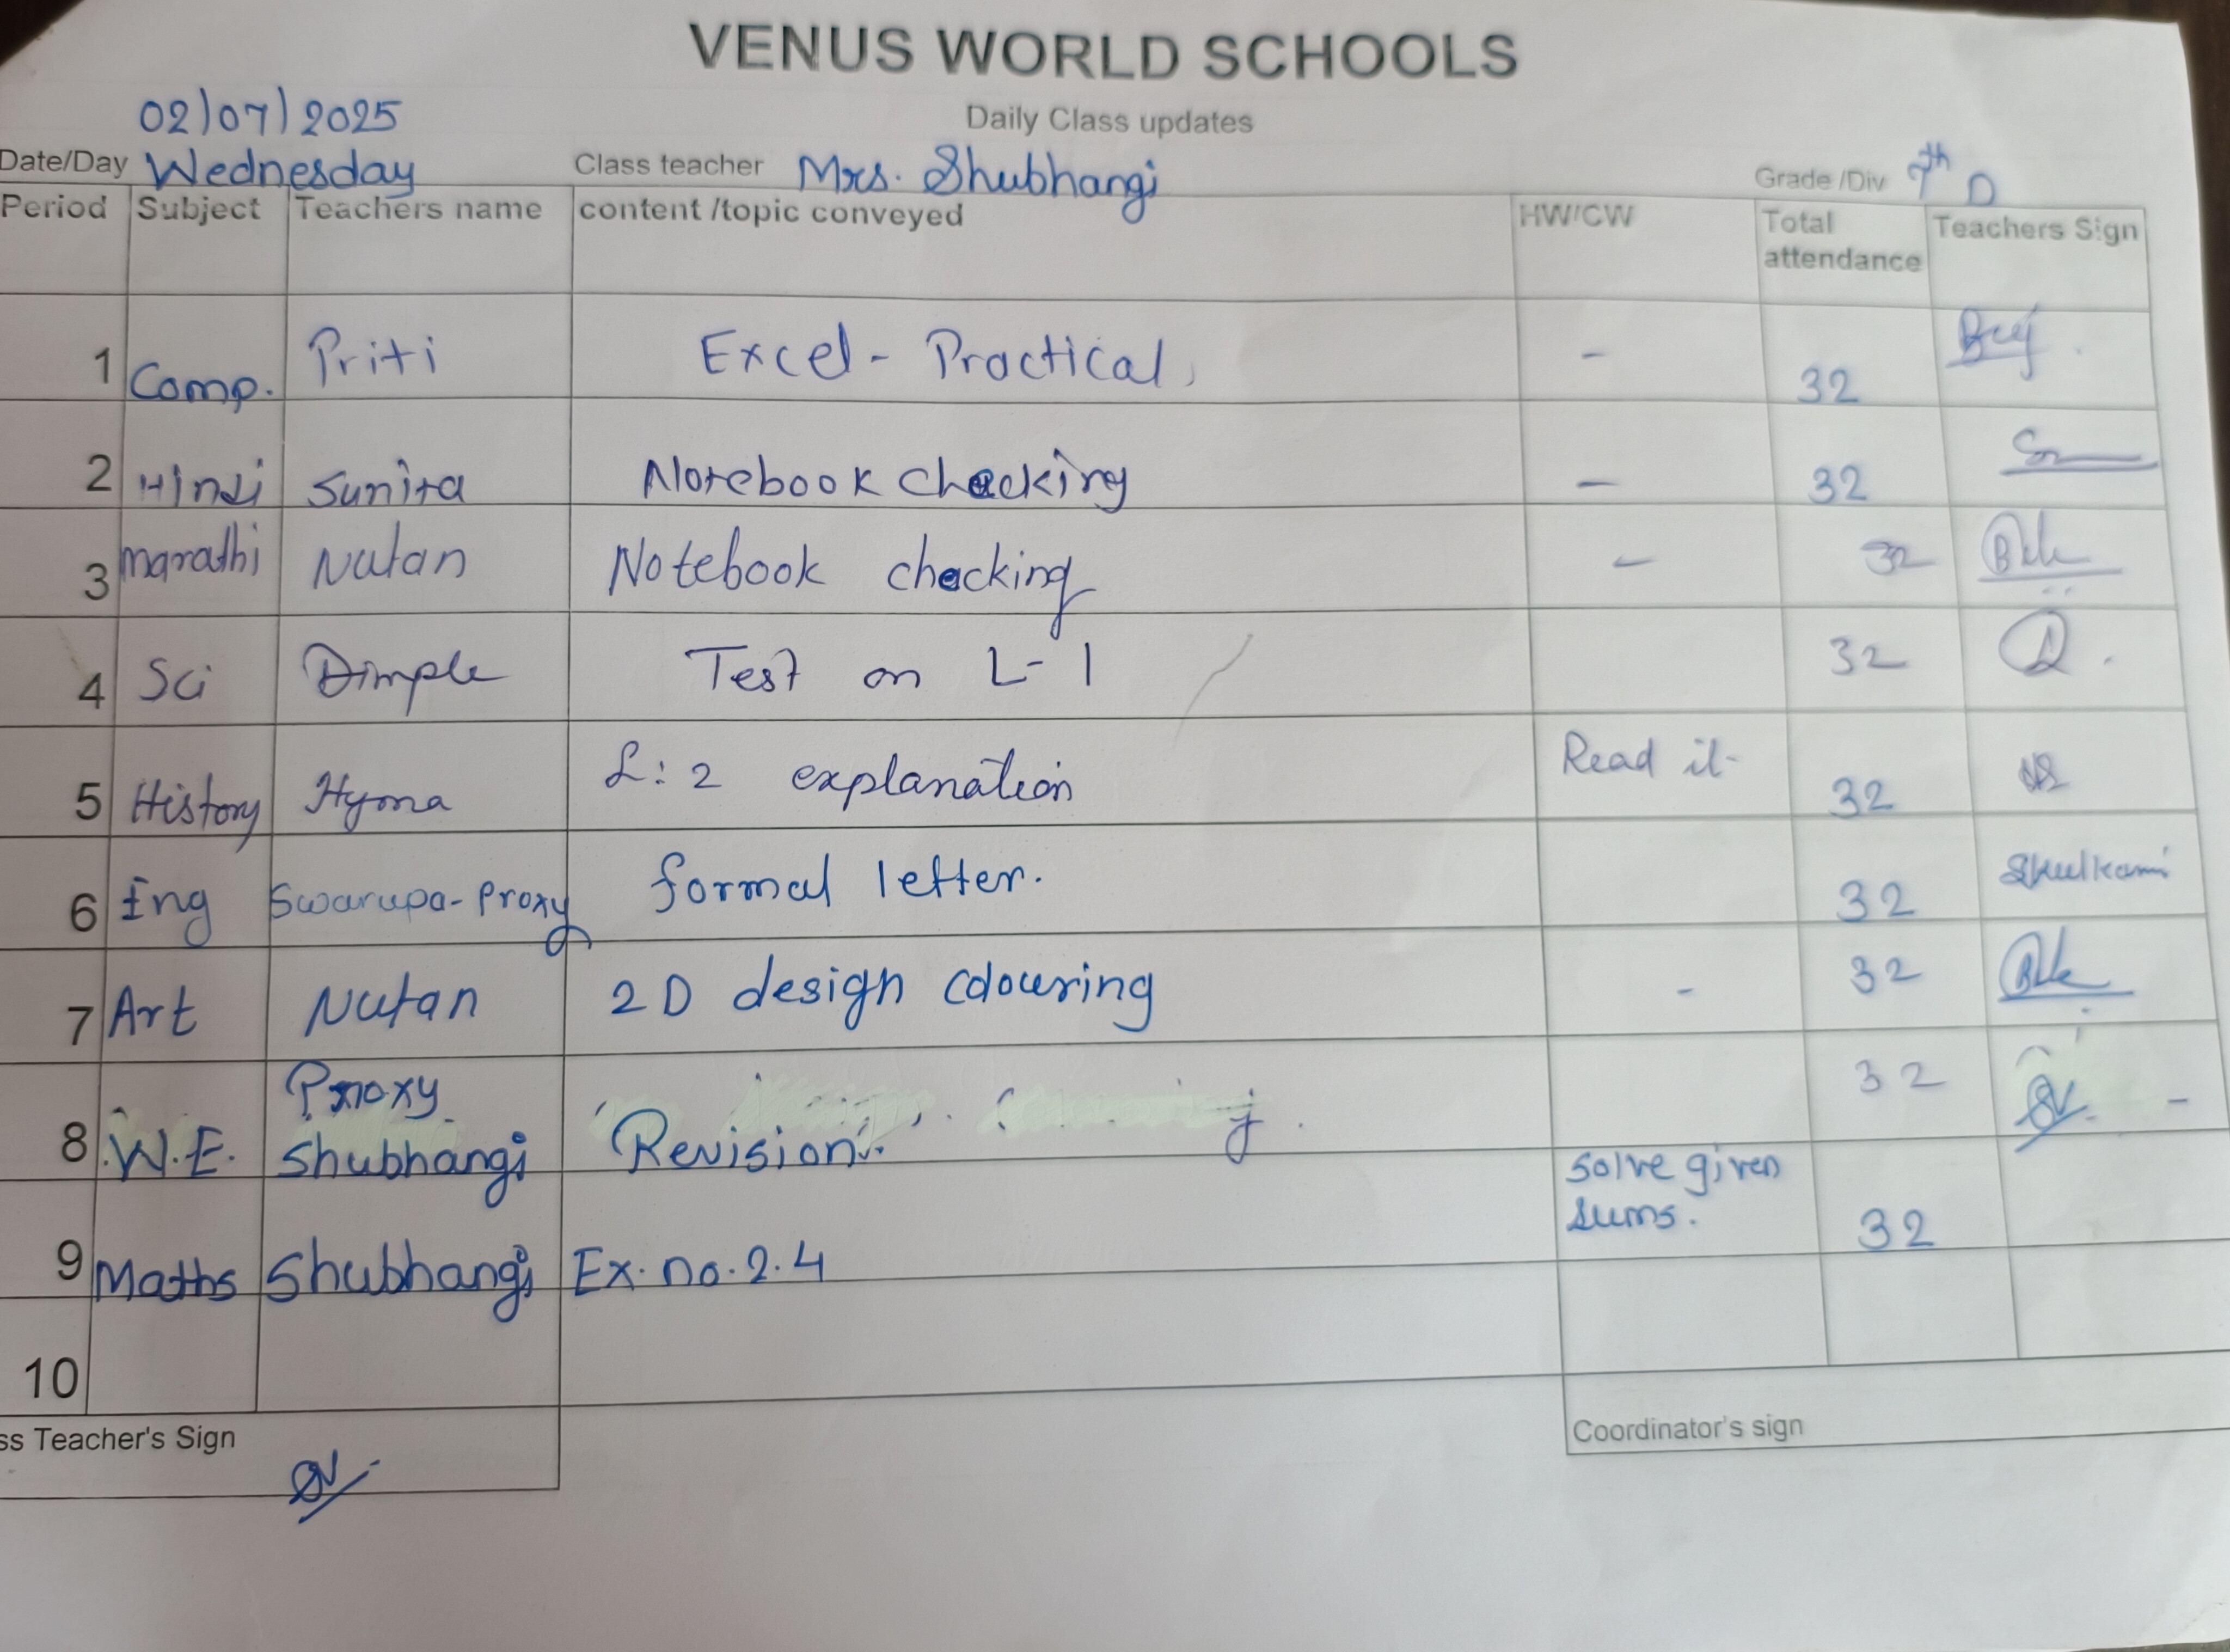 VENUS WORLD SCHOOLS
Daily Class updates
02/07/2025
Date/Day Wednesday Class teacher Mrs. Shubhangi Grade /Div 7th D
Period Subject Teachers name content /topic conveyed HW/CW Total attendance Teachers Sign
1 Comp. Priti Excel - Practical - 32
2 Hindi Sunita Notebook checking - 32
3 Marathi Nutan Notebook checking - 32
4 Sci Dimple Test on L-1 32
5 History Hyma L: 2 explanation Read it- 32
6 Eng Swarupa- Proxy formal letter. 32 Skulkarni
7 Art Nutan 2D design colouring - 32
8 W.E. Proxy Shubhangi Revision. 32
9 Maths Shubhangi Ex. no. 2.4 solve given sums. 32
10
ss Teacher's Sign Coordinator's sign